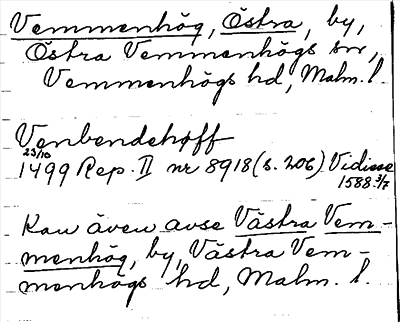 Vemmenhög, Östra, by,
Östra Vemmenhögs sn,
Vemmenhögs hd, Malm. l.
Venbendehøff
23/10
1499 Rep. II nr 8918 (s. 206) Vidisse
1588 3/7
Kan även avse Västra Vem-
menhög, by, Västra Vem-
menhögs hd, Malm. l.